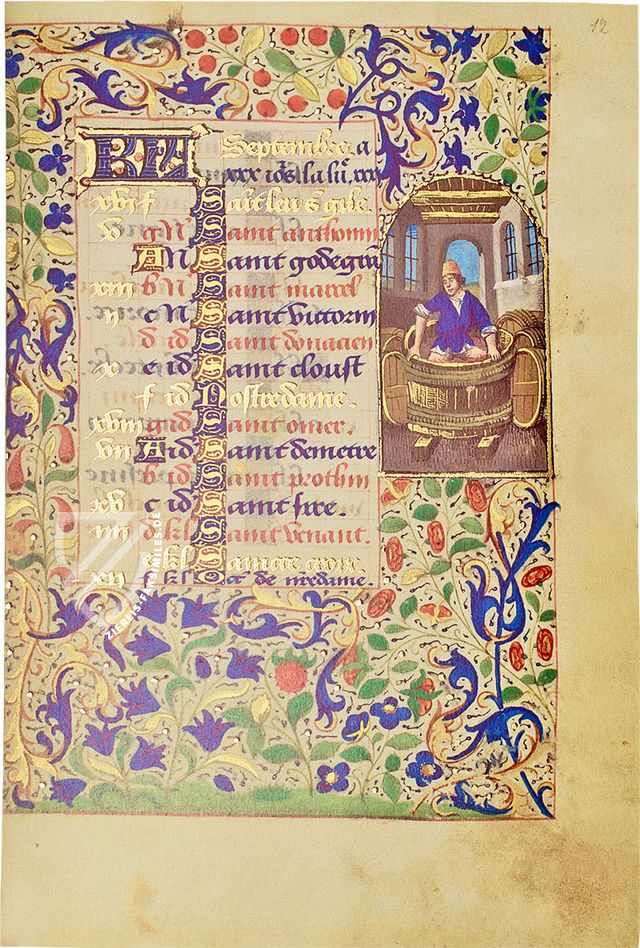 12
KL Septembre a
xxx io.rs la lu. xxx
xvi f Saint leu s gile.
v g N Saint anthonin
A N Saint godegran
xiii b N Saint marcel
ii c N Saint victorin
d id Saint donacien
x e id Saint cloust
f id Nostredame.
xviii g id Saint omer.
vii A id Saint demetre
b id Saint prothin
xv c id Saint sire.
iiii d kl Saint venant.
e kl Saincte croix.
xii f kl Oct de nredame.
ZIEREIS-FACSIMILES.DE